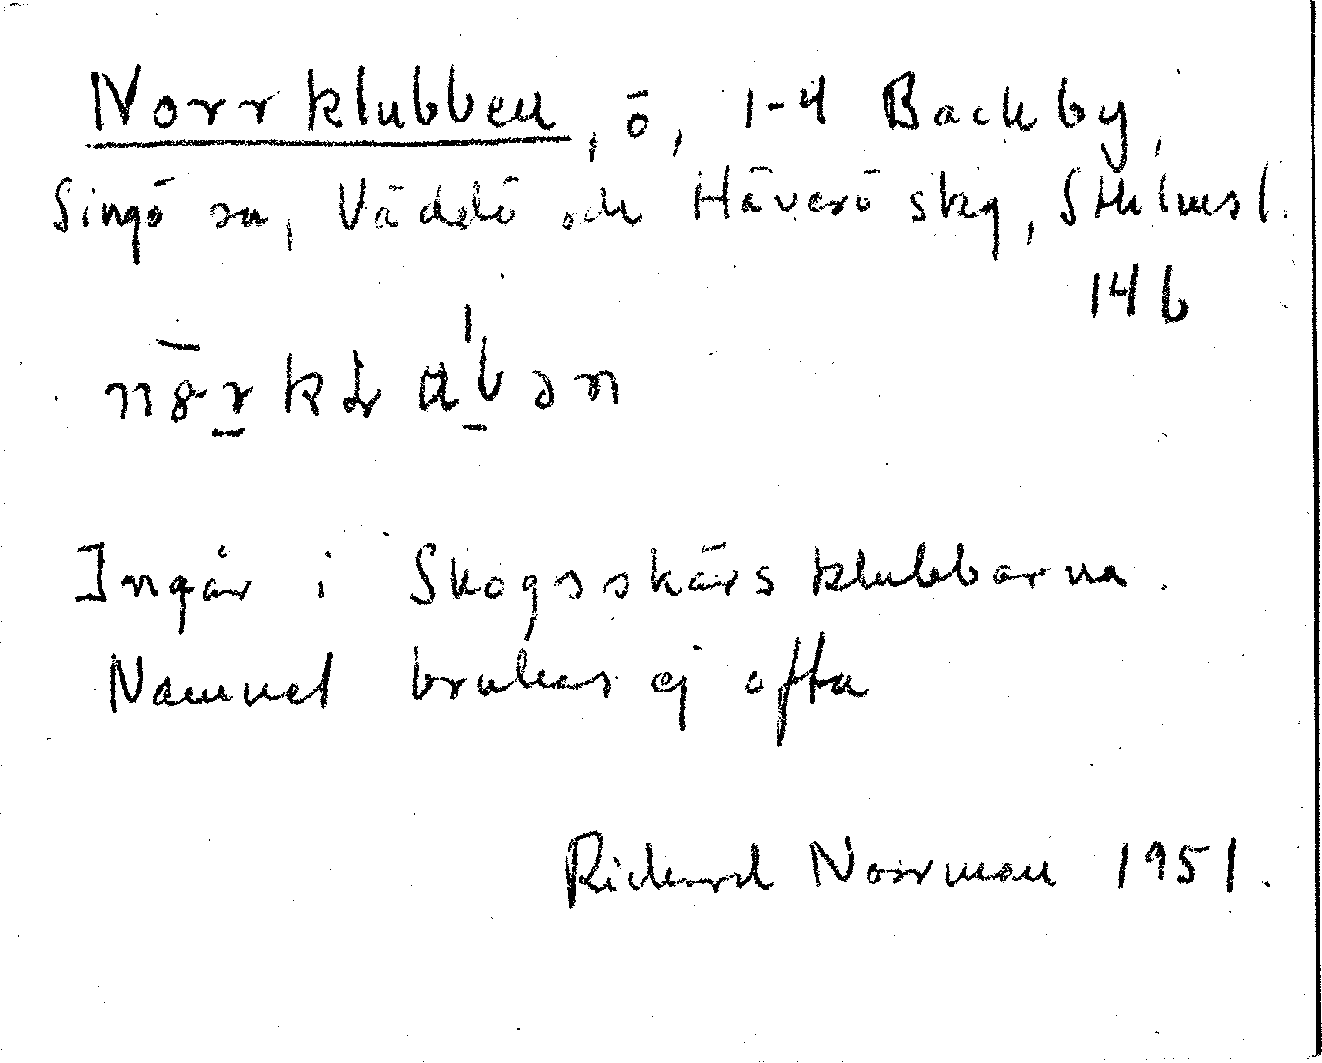 Norrklubben, ö, 1-4 Backby,
Singö sn, Väddö och Häverö skg, Sthlms l.
14 b
Ingår i Skogsskärsklubbarna.
Namnet brukas ej ofta
Richard Norrman 1951.